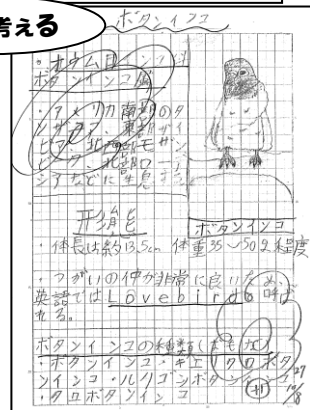 考える
ボタンインコ
・オウム目インコ科
ボタンインコ属
・アメリカ南部のタ
ンザニア、東部ザイ
ビア、北西部モザン
ビーク、北部ロー
シアなどに生息する
形態
ボタンインコ
・体長は約13.5cm 体重35～50g程度
・つがいの仲が非常に良いため、
英語ではLovebirdと呼ば
れる。
ボタンインコの種類
・ボタンインコ・キエリクロボタ
ンインコ・ルリゴシボタンインコ
・クロボタンインコ